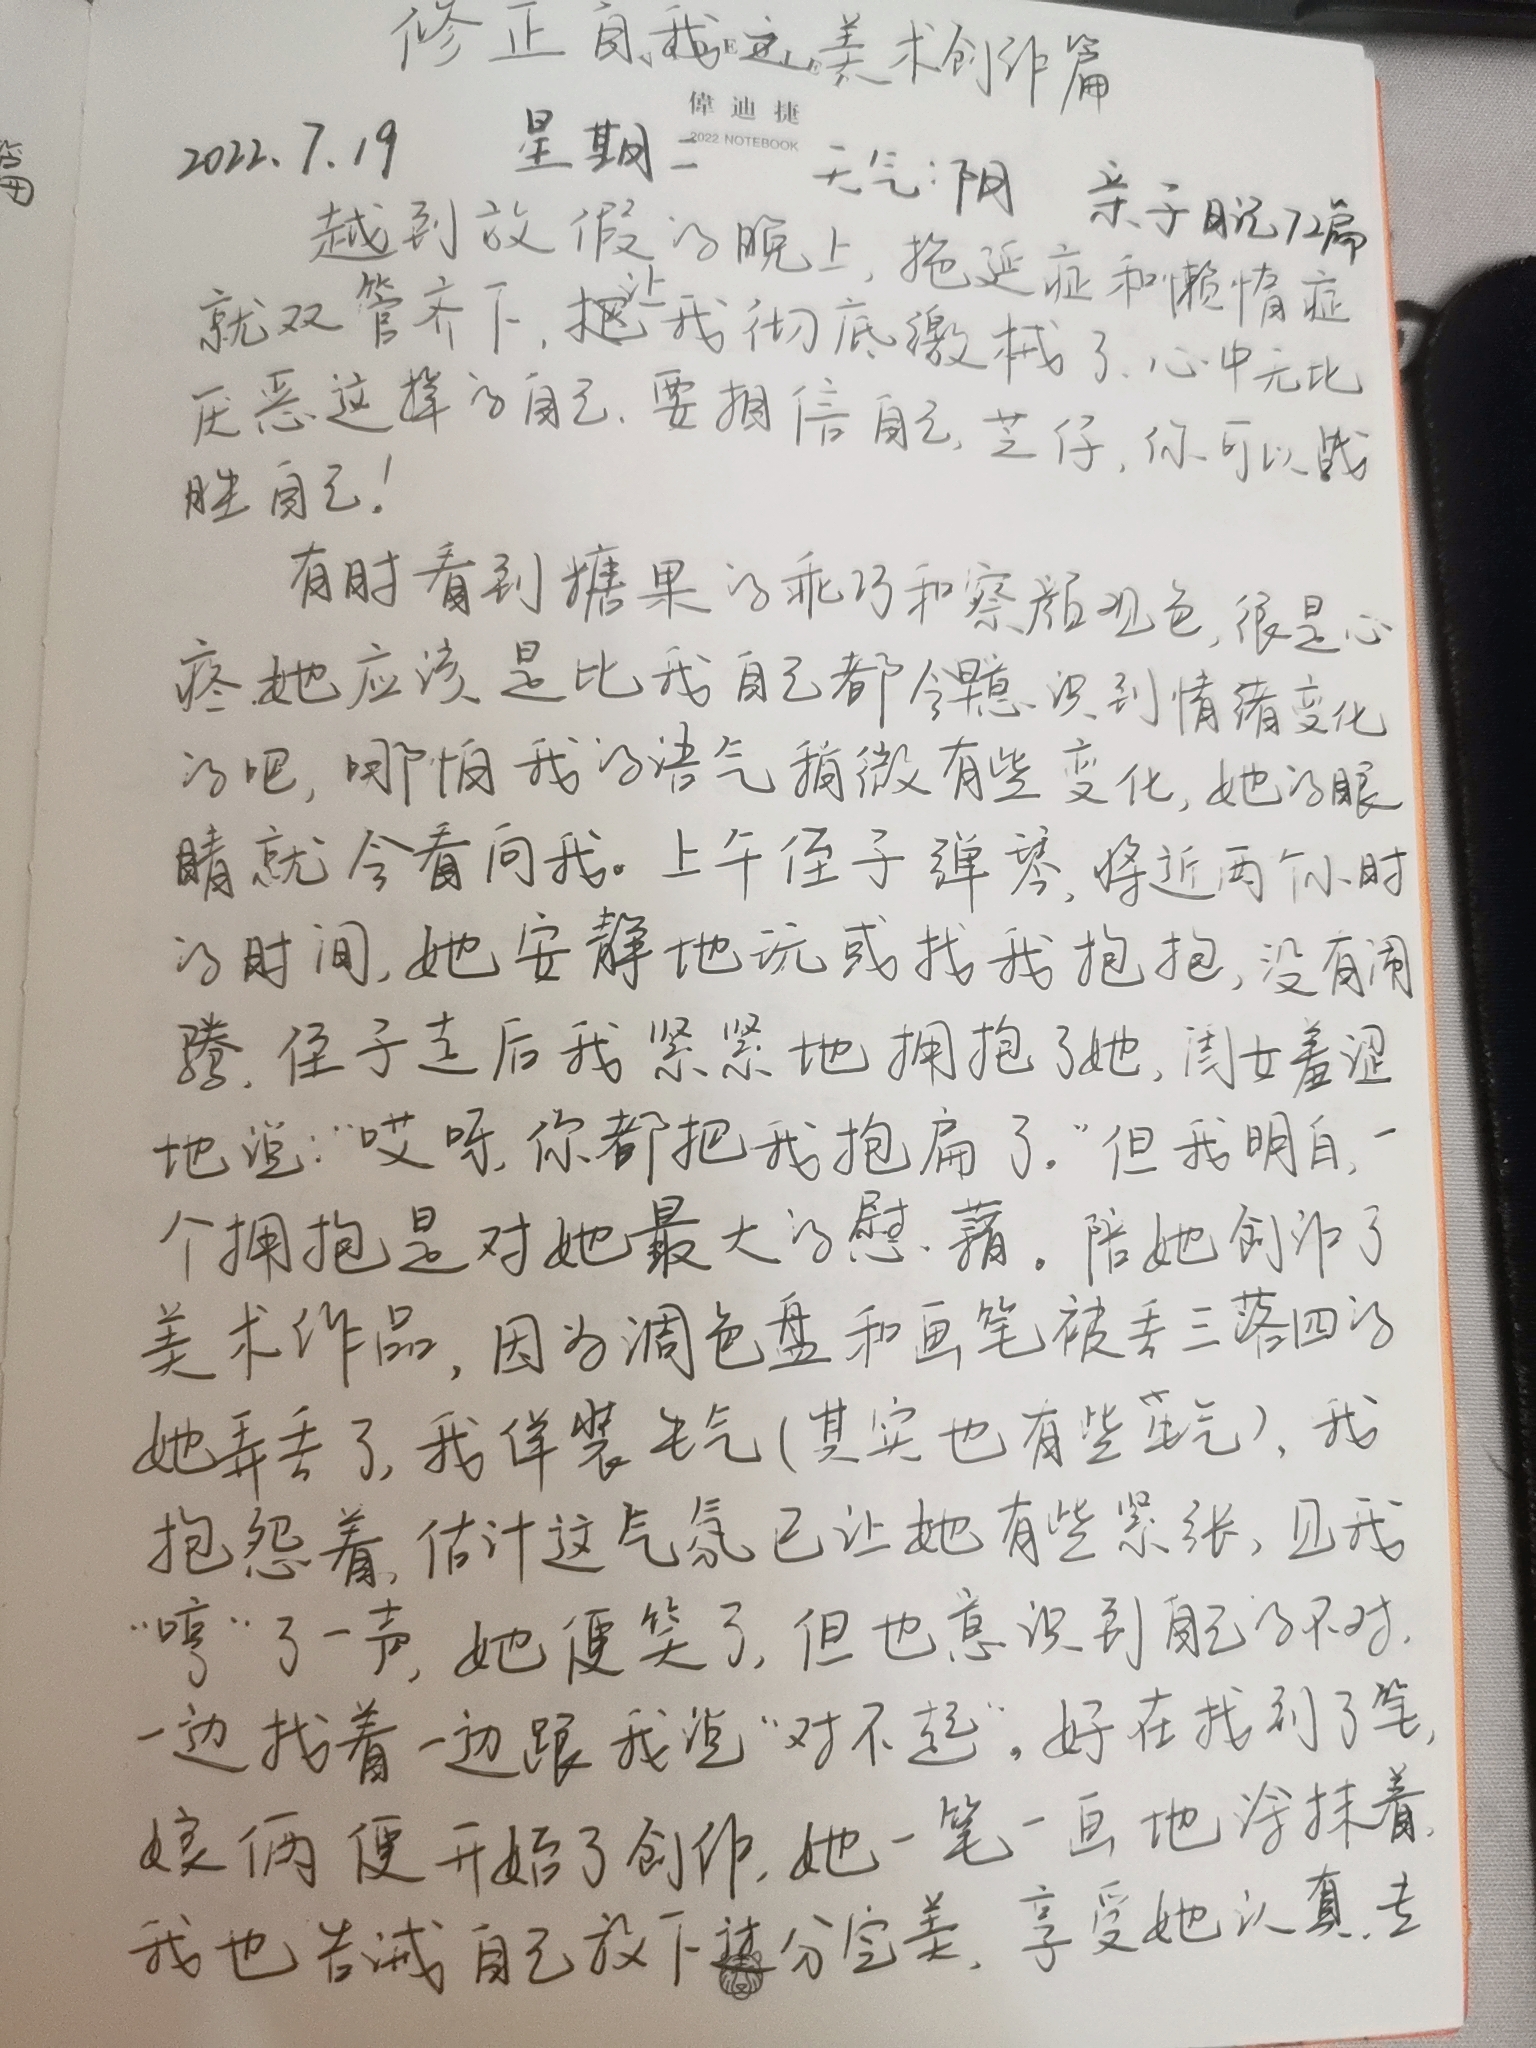 修正自我之美术创作篇
偉迪捷
2022 NOTEBOOK
2022.7.19 星期二 天气:阴 亲子日记72篇
越到放假的晚上,拖延症和懒惰症
就双管齐下,让我彻底缴械了.心中无比
厌恶这样的自己.要相信自己,芝仔,你可以战
胜自己!
有时看到糖果的乖巧和察颜观色,很是心
疼.她应该是比我自己都会意识到情绪变化
的吧,哪怕我的语气稍微有些变化,她的眼
睛就会看向我。上午侄子弹琴,将近两个小时
的时间,她安静地玩或找我抱抱,没有闹
腾.侄子走后我紧紧地拥抱了她,闺女羞涩
地说:“哎呀,你都把我抱扁了.”但我明白,一
个拥抱是对她最大的慰藉。陪她创作了
美术作品,因为调色盘和画笔被丢三落四的
她弄丢了,我佯装生气(其实也有些生气),我
抱怨着,估计这气氛已让她有些紧张,见我
“哼”了一声,她便笑了,但也意识到自己的不对,
一边找着一边跟我说“对不起”。好在找到了笔,
娘俩便开始了创作,她一笔一画地涂抹着,
我也告诫自己放下过分完美,享受她认真去
篇